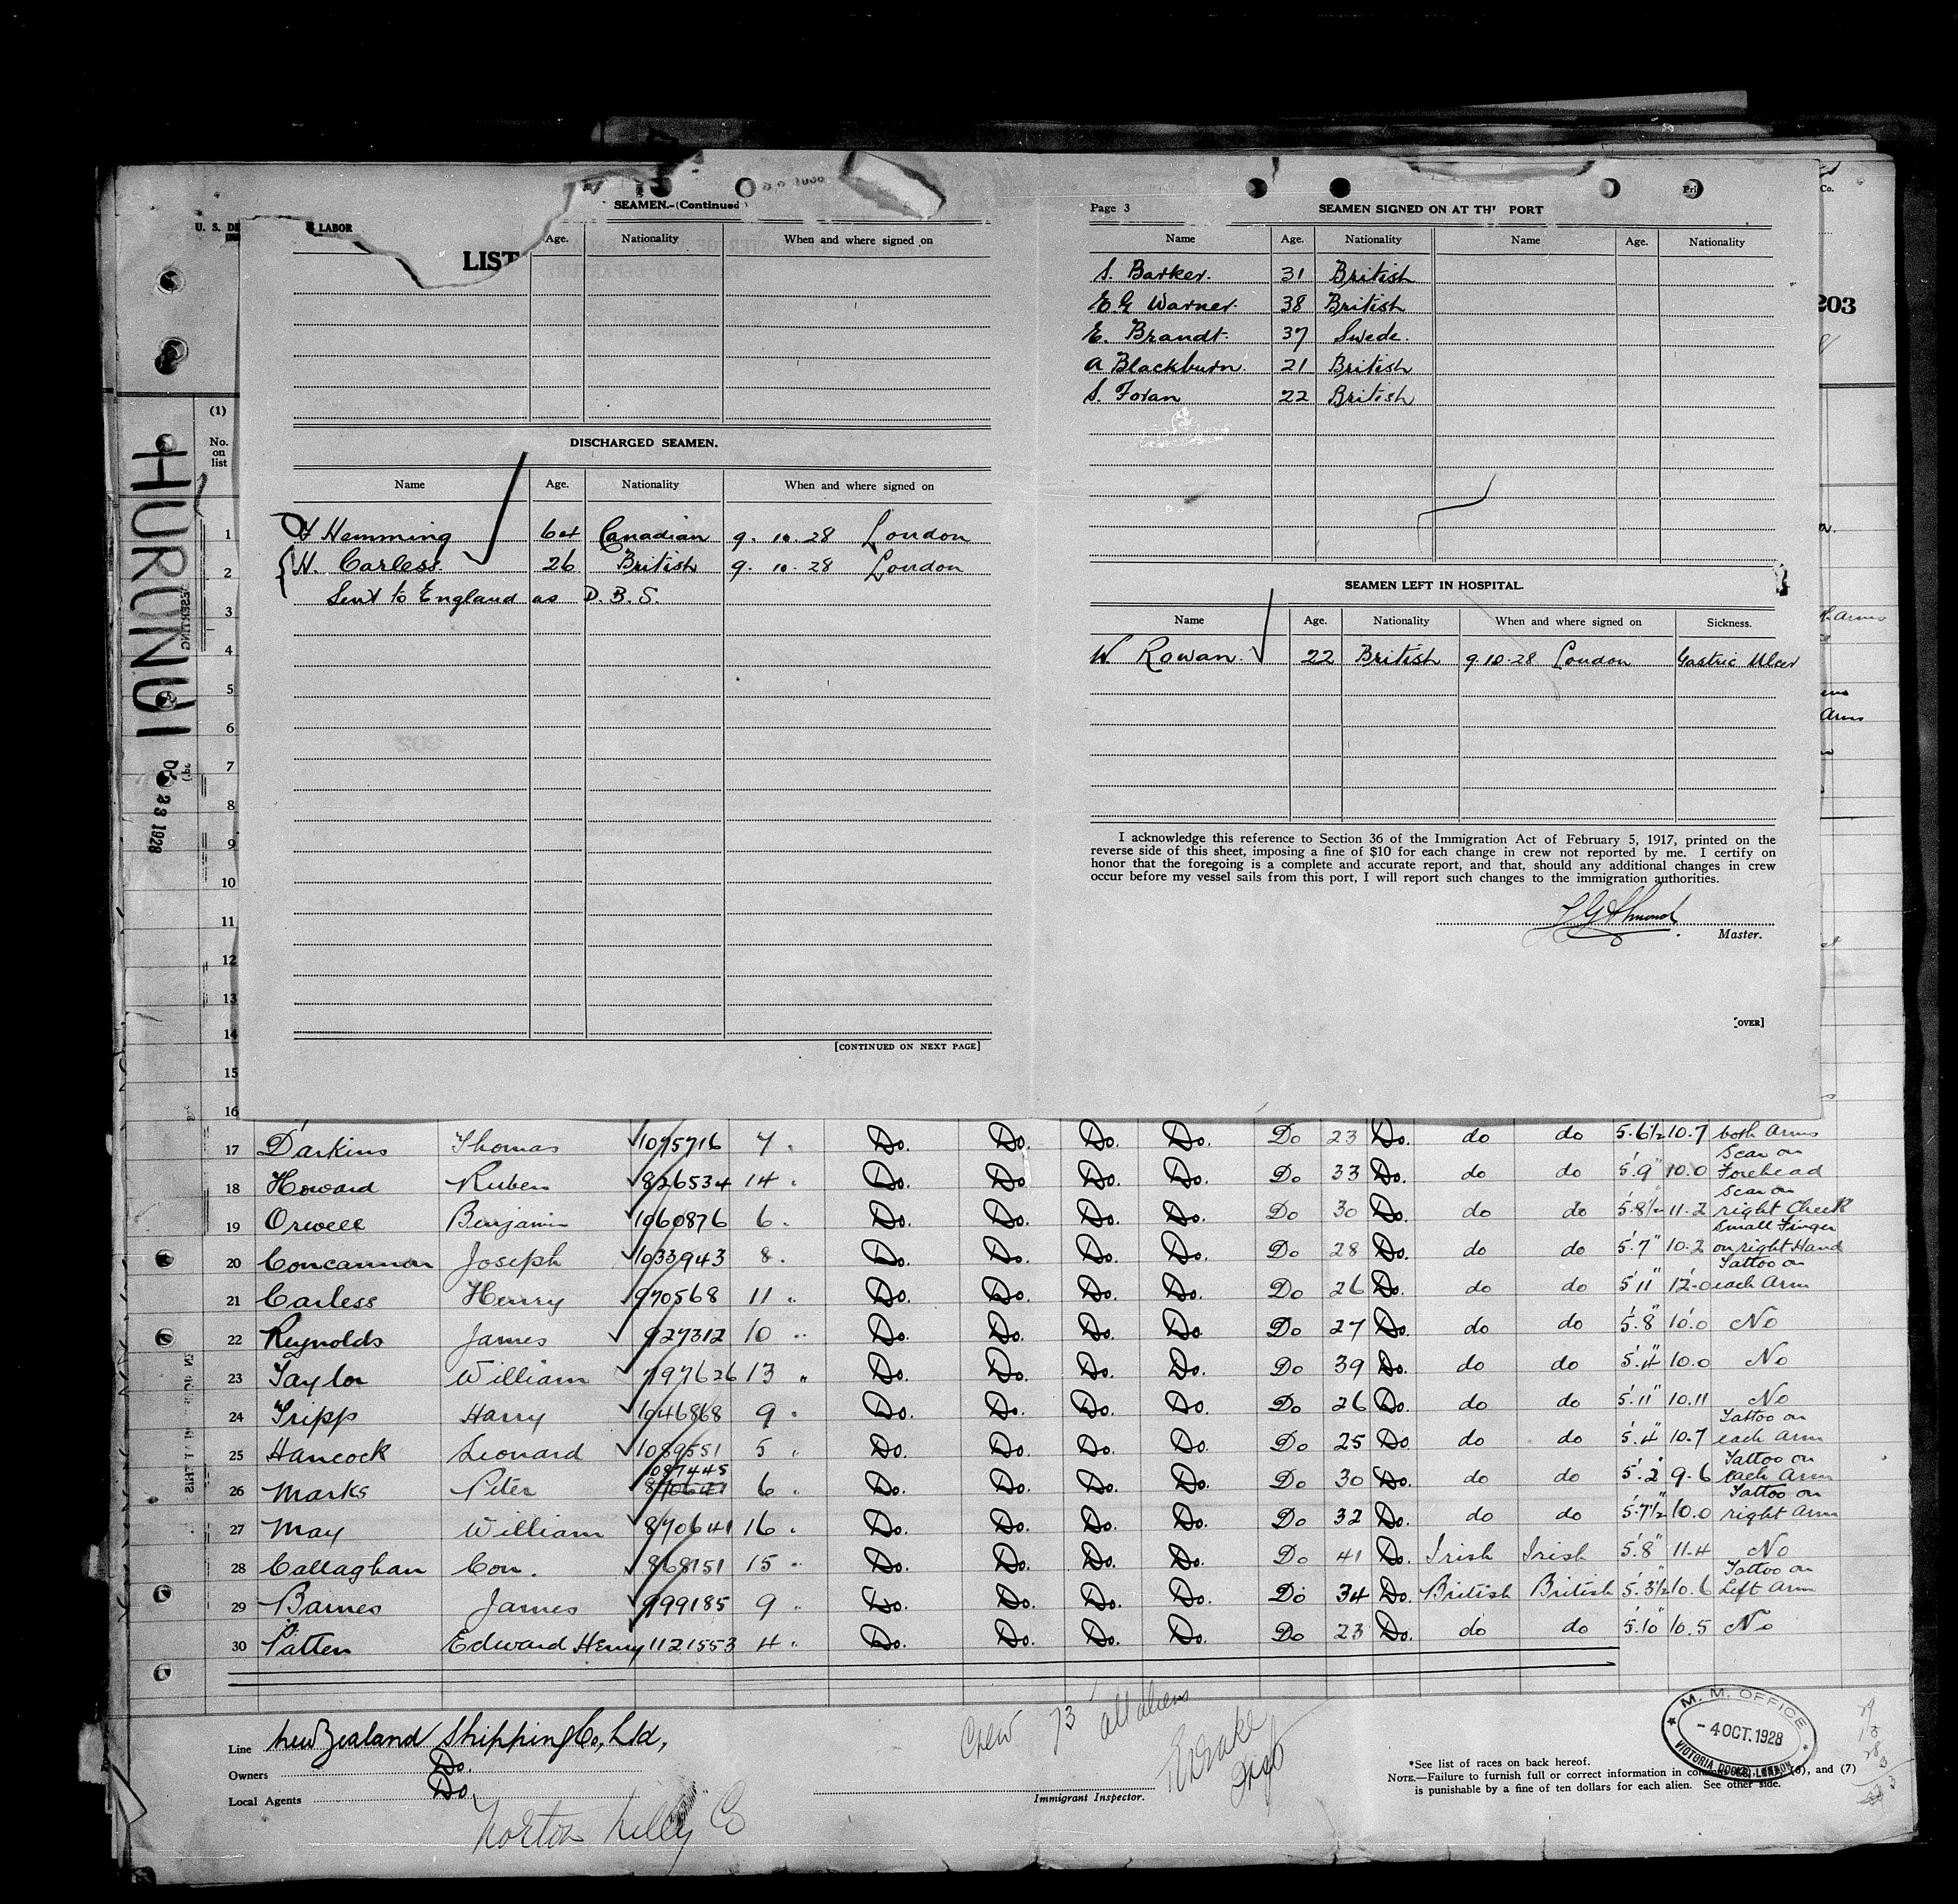 U. S. DE
LABOR
LIST
SEAMEN.-(Continued)
Age. Nationality When and where signed on
DISCHARGED SEAMEN.
Name Age. Nationality When and where signed on
Hemming 64 Canadian 9. 10. 28 London
H. Carless. 26 British 9. 10. 28 London
Sent to England as D. B. S.
[CONTINUED ON NEXT PAGE]
Page 3 SEAMEN SIGNED ON AT TH PORT
Name Age. Nationality Name Age. Nationality
S. Barker. 31 British
E. G Warner. 38 British
E. Brandt. 37 Swede.
A Blackburn. 21 British
S. Foran 22 British
SEAMEN LEFT IN HOSPITAL.
Name Age. Nationality When and where signed on Sickness.
W Rowan. 22 British 9. 10. 28 London Gastric Ulcer
I acknowledge this reference to Section 36 of the Immigration Act of February 5, 1917, printed on the
reverse side of this sheet, imposing a fine of $10 for each change in crew not reported by me. I certify on
honor that the foregoing is a complete and accurate report, and that, should any additional changes in crew
occur before my vessel sails from this port, I will report such changes to the immigration authorities.
Master.
[OVER]
Co.
203
Arms
Arm
HURUNUI
23 1928
(1)
No.
on
list
1
2
3
4
5
6
7
8
9
10
11
12
13
14
15
16
17 Darkins Thomas 1075716 7 Do. Do. Do. Do. Do 23 Do. do do 5'.6½ 10.7 both Arms
18 Howard Ruben 826534 14 Do. Do. Do. Do. Do 33 Do. do do 5'.9" 10.0 Scar on Forehead
19 Orwell Benjamin 1060876 6 Do. Do. Do. Do. Do 30 Do. do do 5'.8½ 11.2 Scar on right Cheek
20 Concannon Joseph 1033943 8 Do. Do. Do. Do. Do 28 Do. do do 5'.7" 10.2 Small Finger on right Hand
21 Carless Henry 970568 11 Do. Do. Do. Do. Do 26 Do. do do 5'11" 12.0 Tattoo on each Arm
22 Reynolds James 927312 10 Do. Do. Do. Do. Do 27 Do. do do 5'.8" 10.0 No
23 Taylor William 797626 13 " Do. Do. Do. Do. Do 39 Do. do do 5'.4" 10.0 No
24 Tripp Harry 1046868 9 Do. Do. Do. Do. Do 26 Do. do do 5'.11" 10.11 No
25 Hancock Leonard 1089551 5 Do. Do. Do. Do. Do 25 Do do do 5'.4" 10.7 Tattoo on each Arm
26 Marks Peter 1087445 870641 6 Do. Do. Do. Do. Do 30 Do. do do 5'.2" 9.6 Tattoo on each Arm
27 May William 870641 16 Do. Do. Do. Do. Do 32 Do. do do 5'.7½" 10.0 Tattoo on right Arm
28 Callaghan Con. 868151 15 Do. Do. Do. Do. Do 41 Do. Irish Irish 5'.8" 11.4 No
29 Barnes James 999185 9 Do. Do. Do. Do. Do 34 Do. British British 5'.3½" 10.6 Tattoo on Left Arm
30 Patten Edward Henry 1121553 4 Do. Do. Do. Do. Do 23 Do. do do 5'.10" 10.5 No
Line New Zealand Shipping Co., Ltd,
Owners Do.
Local Agents Do.
Norton Lilly Co
Crew 73 all aliens
Immigrant Inspector.
M. M. OFFICE
- 4 OCT. 1928
VICTORIA DOCKS, LONDON
*See list of races on back hereof.
NOTE.—Failure to furnish full or correct information in columns and (7)
is punishable by a fine of ten dollars for each alien. See other side.